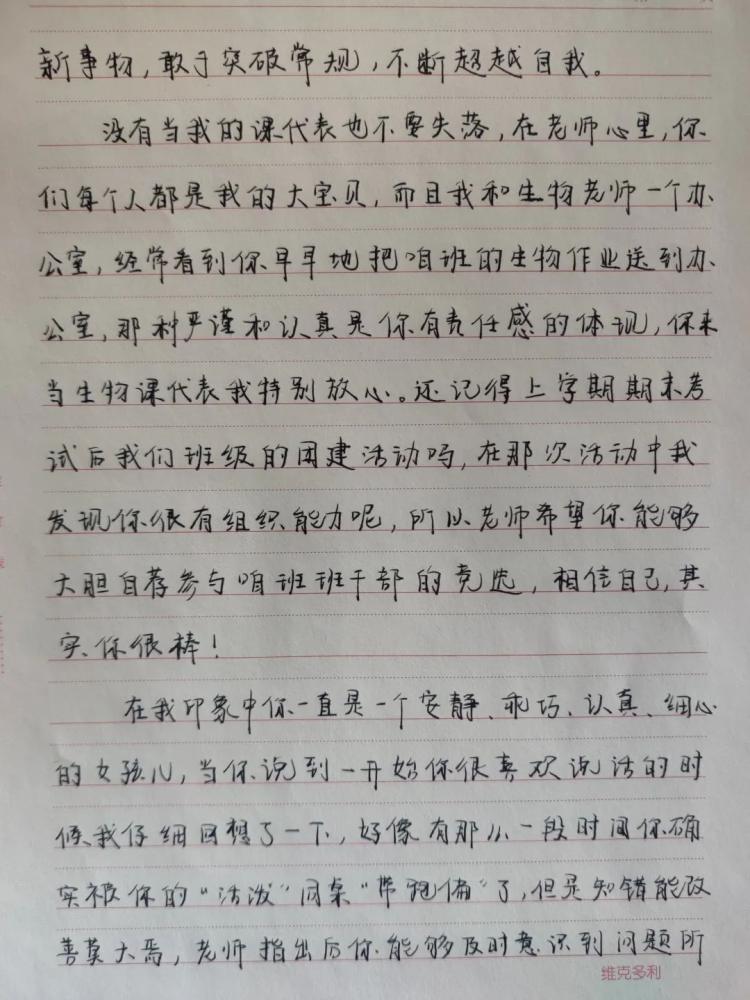 新事物，敢于突破常规，不断超越自我。
没有当我的课代表也不要失落，在老师心里，你
们每个人都是我的大宝贝，而且我和生物老师一个办
公室，经常看到你早早地把咱班的生物作业送到办
公室，那种严谨和认真是你有责任感的体现，你来
当生物课代表我特别放心。还记得上学期期末考
试后我们班级的团建活动吗，在那次活动中我
发现你很有组织能力呢，所以老师希望你能够
大胆自荐参与咱班班干部的竞选，相信自己，其
实你很棒！
在我印象中你一直是一个安静、乖巧、认真、细心
的女孩儿，当你说到一开始你很喜欢说话的时
候我仔细回想了一下，好像有那么一段时间你确
实被你的“活泼”同桌“带跑偏”了，但是知错能改
善莫大焉，老师指出后你能够及时意识到问题所
维克多利